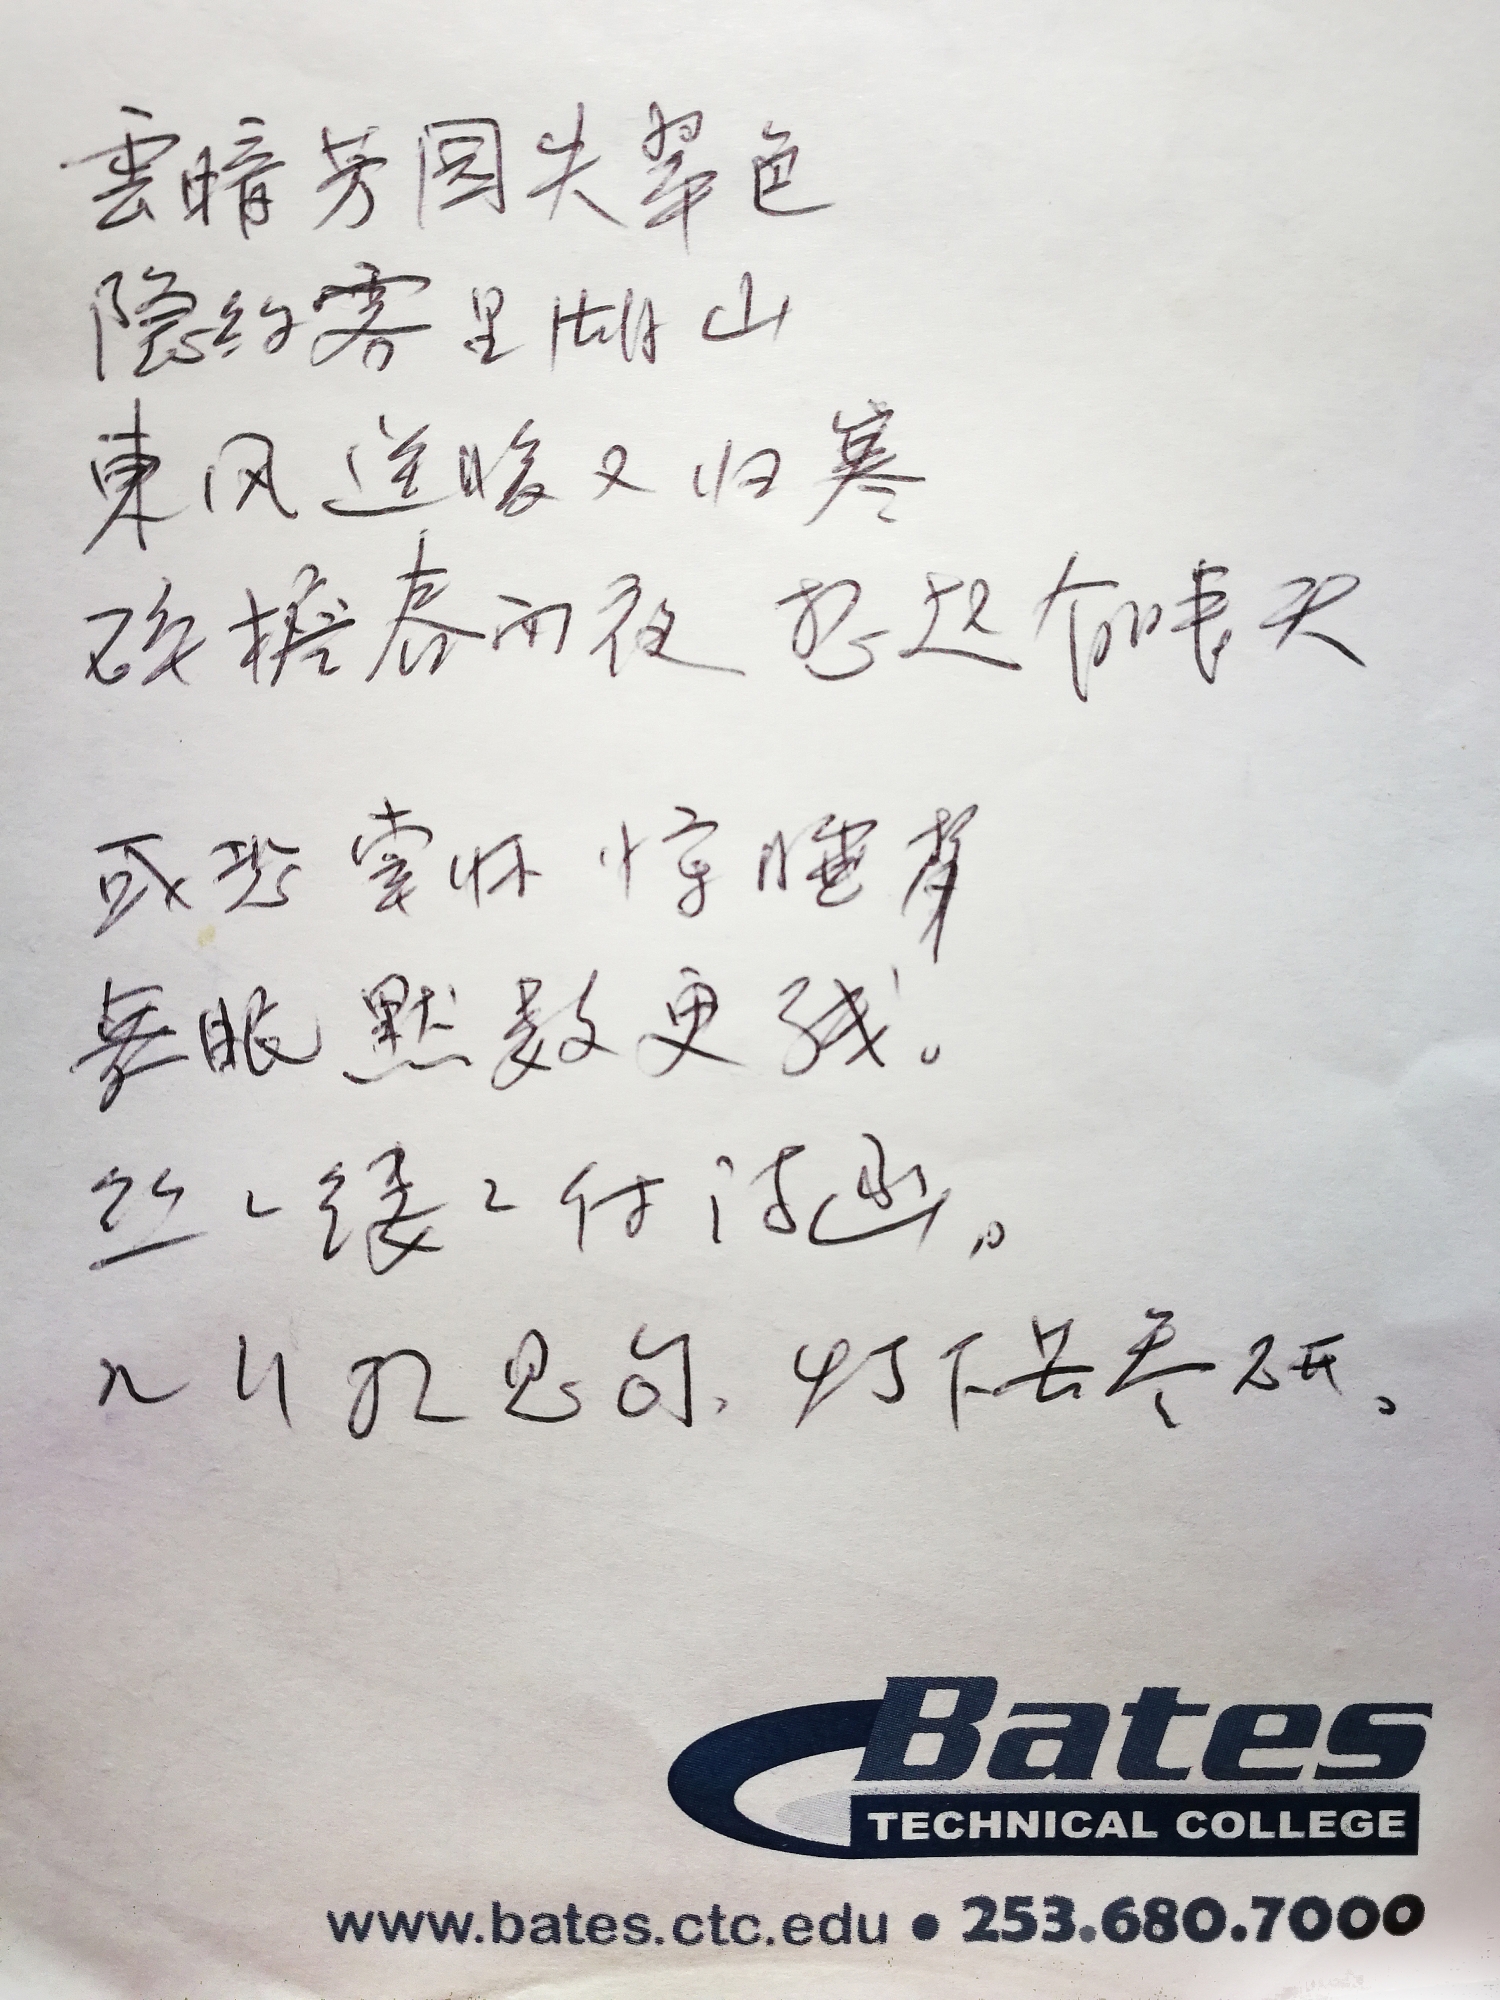 雲暗芳园失翠色
隐约雾里湖山
東风送暖又归寒
破檐春雨夜 想起 天
或恐 怀惊睡
無眠默数更残。
丝丝缕缕付诗函。
几 思句，灯下 卷研。
Bates
TECHNICAL COLLEGE
www.bates.ctc.edu • 253.680.7000